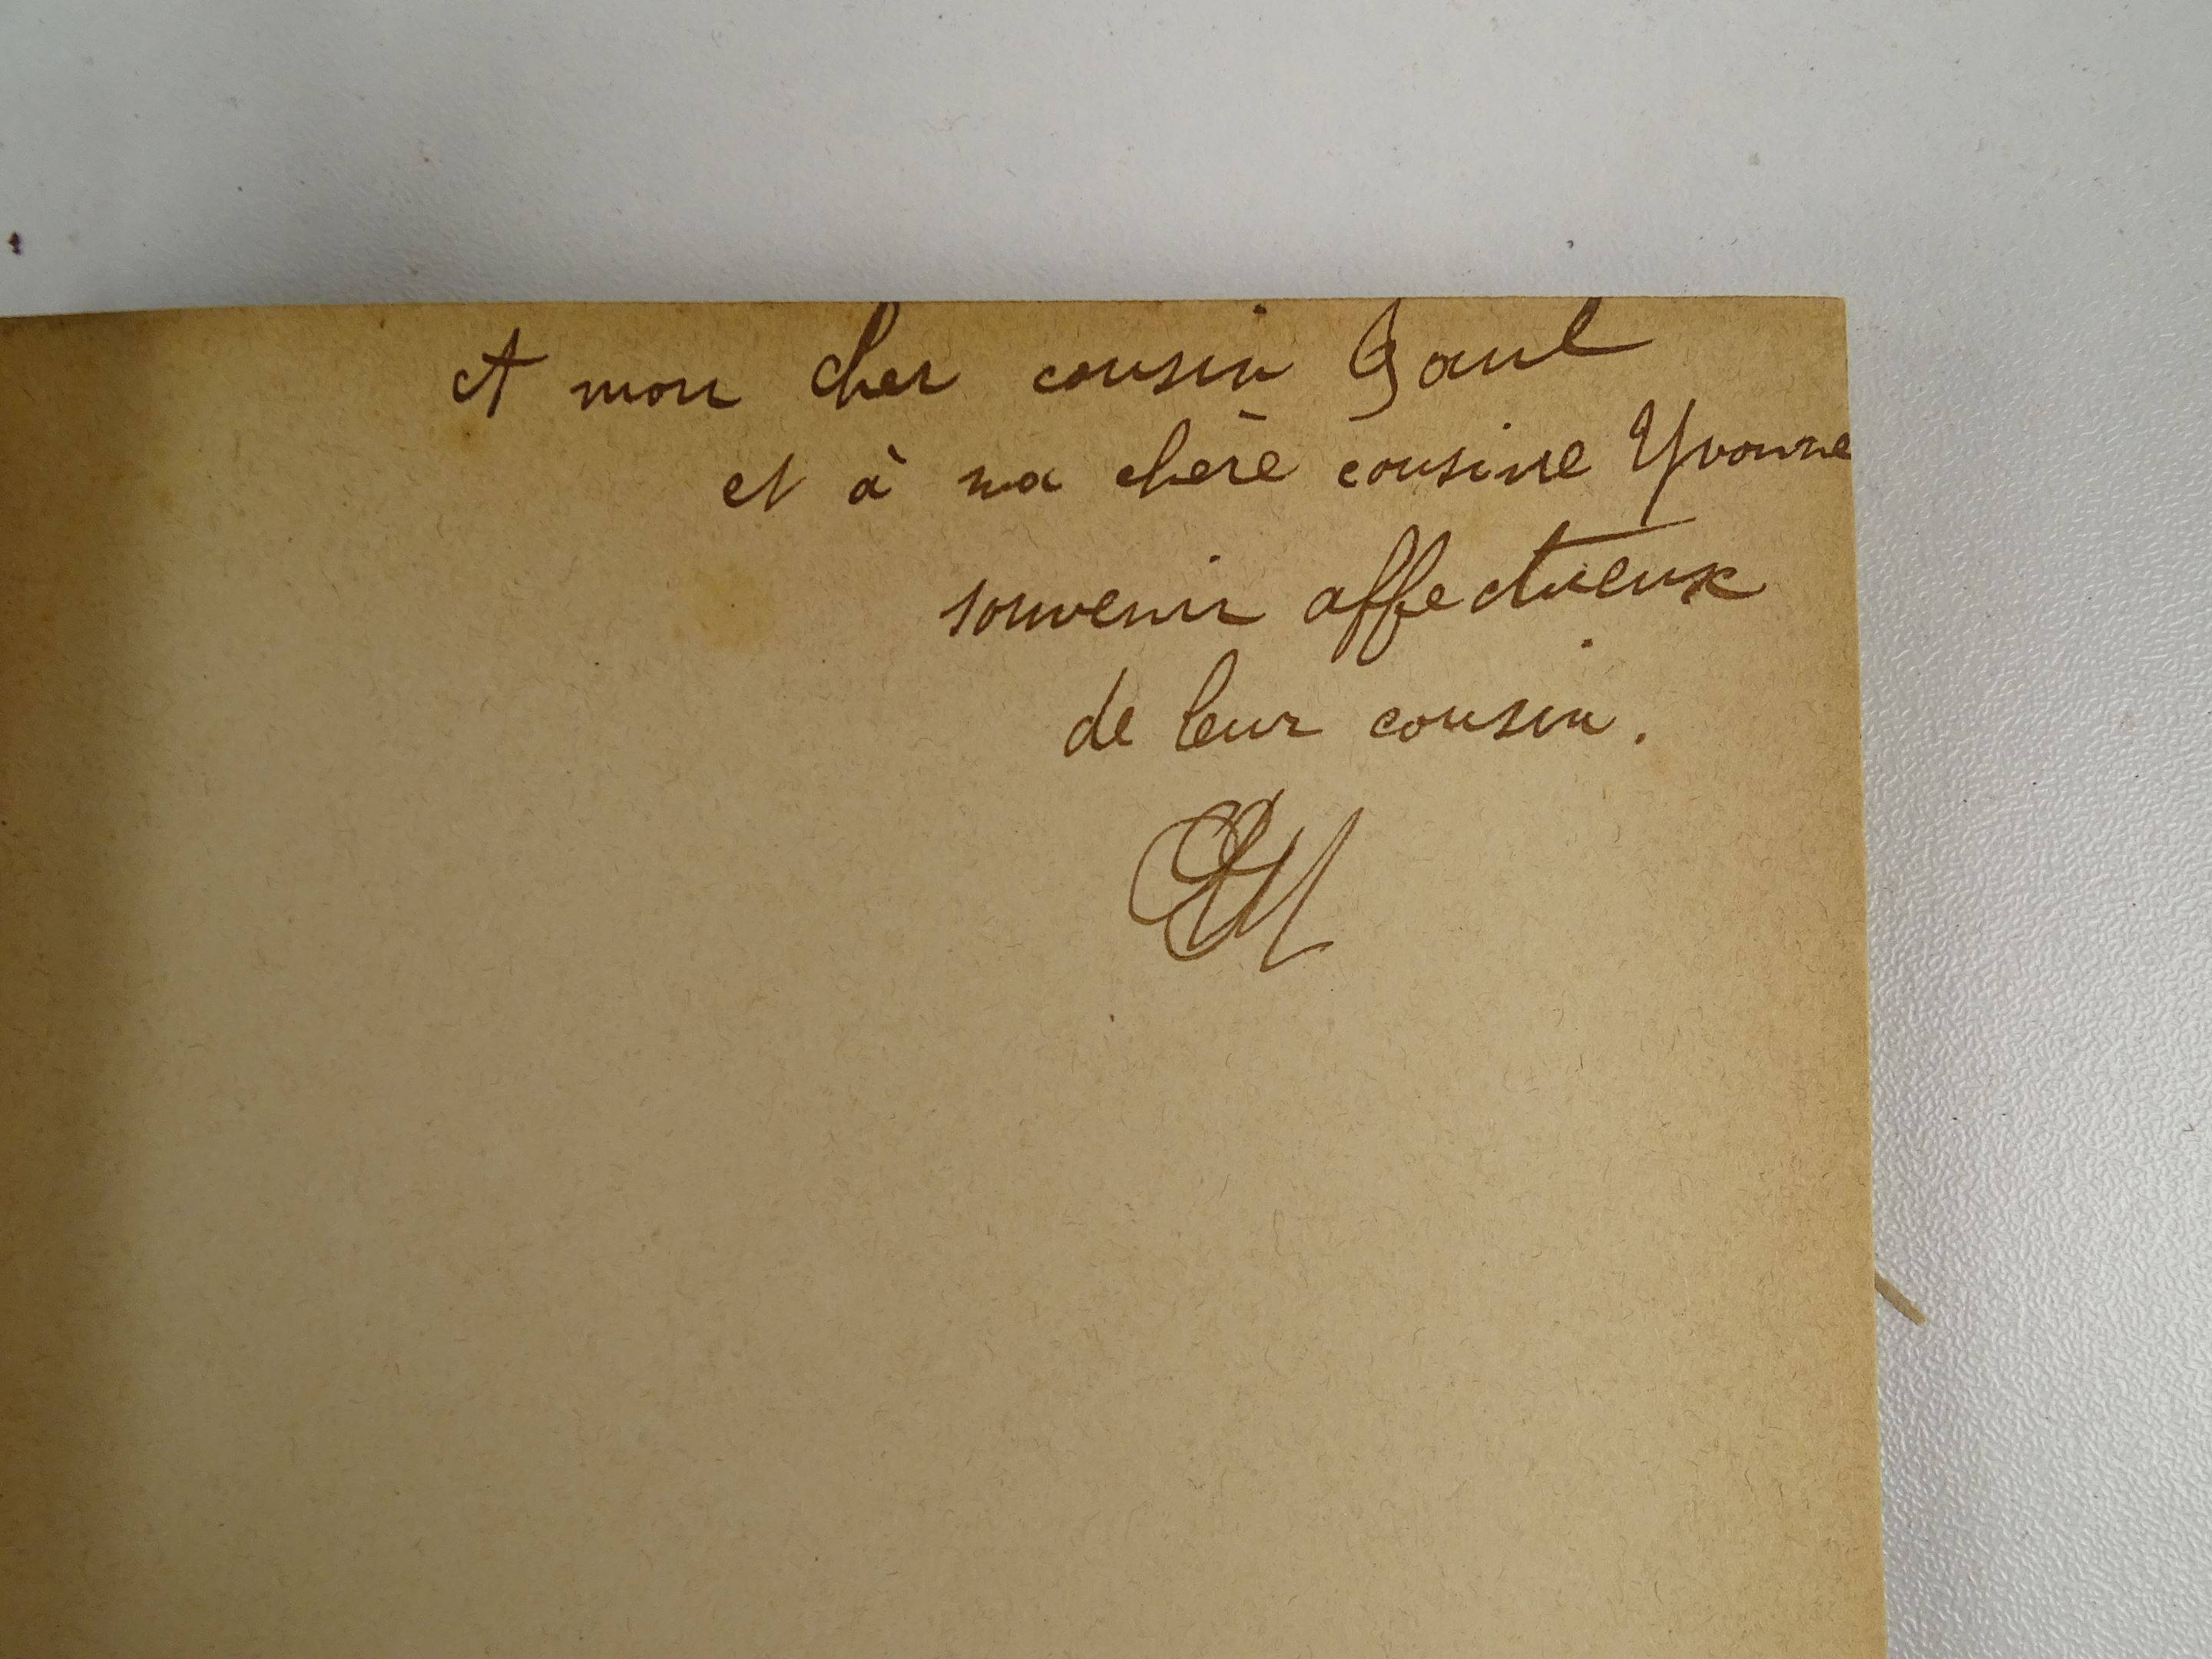 A mon cher cousin Paul
et à ma chère cousine Yvonne
souvenir affectueux
de leur cousin.